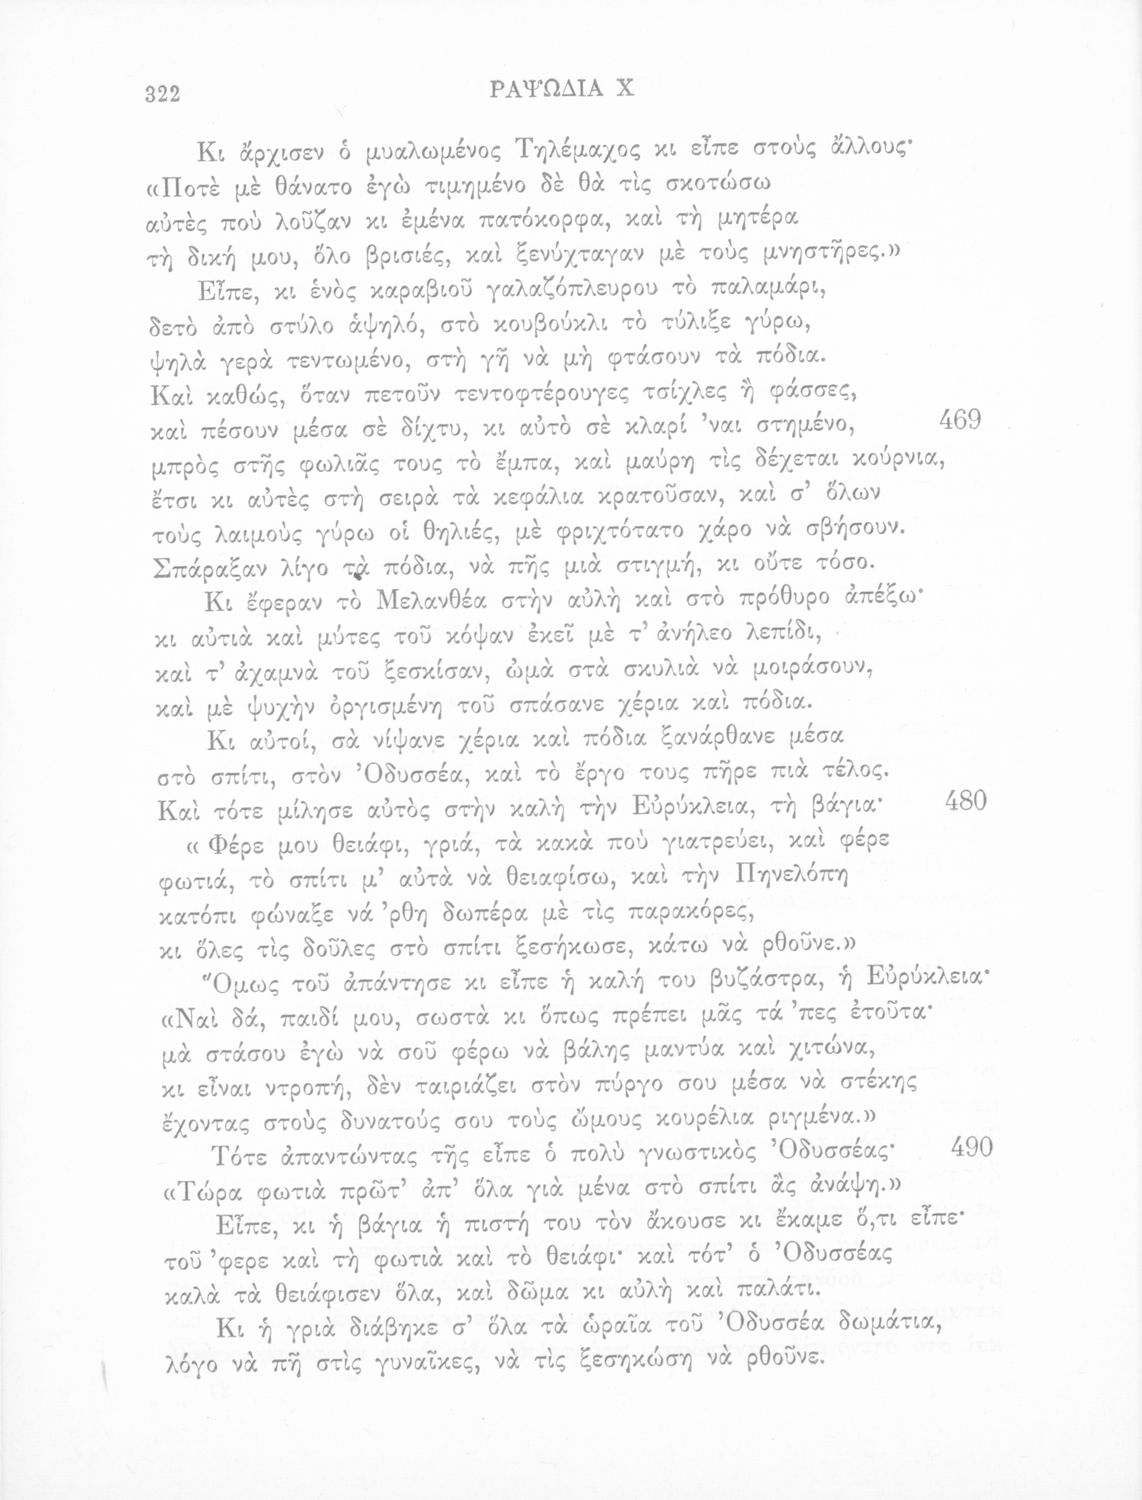 322
ΡΑΨΩΔΙΑ Χ
Κι ἄρχισεν ὁ μυαλωμένος Τηλέμαχος κι εἶπε στοὺς ἄλλους·
«Ποτὲ μὲ θάνατο ἐγὼ τιμημένο δὲ θὰ τὶς σκοτώσω
αὐτὲς ποὺ λοῦζαν κι ἐμένα πατόκορφα, καὶ τὴ μητέρα
τὴ δική μου, ὅλο βρισιές, καὶ ξενύχταγαν μὲ τοὺς μνηστῆρες.»
Εἶπε, κι ἑνὸς καραβιοῦ γαλαζόπλευρου τὸ παλαμάρι,
δετὸ ἀπὸ στύλο ἁψηλό, στὸ κουβούκλι τὸ τύλιξε γύρω,
ψηλὰ γερὰ τεντωμένο, στὴ γῆ νὰ μὴ φτάσουν τὰ πόδια.
Καὶ καθώς, ὅταν πετοῦν τεντοφτέρουγες τσίχλες ἢ φάσσες,
καὶ πέσουν μέσα σὲ δίχτυ, κι αὐτὸ σὲ κλαρί ’ναι στημένο, 469
μπρὸς στῆς φωλιᾶς τους τὸ ἔμπα, καὶ μαύρη τὶς δέχεται κούρνια,
ἔτσι κι αὐτὲς στὴ σειρὰ τὰ κεφάλια κρατοῦσαν, καὶ σ’ ὅλων
τοὺς λαιμοὺς γύρω οἱ θηλιές, μὲ φριχτότατο χάρο νὰ σβήσουν.
Σπάραξαν λίγο τὰ πόδια, νὰ πῆς μιὰ στιγμή, κι οὔτε τόσο.
Κι ἔφεραν τὸ Μελανθέα στὴν αὐλὴ καὶ στὸ πρόθυρο ἀπέξω·
κι αὐτιὰ καὶ μύτες τοῦ κόψαν ἐκεῖ μὲ τ’ ἀνήλεο λεπίδι,
καὶ τ’ ἀχαμνὰ τοῦ ξεσκίσαν, ὠμὰ στὰ σκυλιὰ νὰ μοιράσουν,
καὶ μὲ ψυχὴν ὀργισμένη τοῦ σπάσανε χέρια καὶ πόδια.
Κι αὐτοί, σὰ νίψανε χέρια καὶ πόδια ξανάρθανε μέσα
στὸ σπίτι, στὸν Ὀδυσσέα, καὶ τὸ ἔργο τους πῆρε πιὰ τέλος.
Καὶ τότε μίλησε αὐτὸς στὴν καλὴ τὴν Εὐρύκλεια, τὴ βάγια· 480
« Φέρε μου θειάφι, γριά, τὰ κακὰ ποὺ γιατρεύει, καὶ φέρε
φωτιά, τὸ σπίτι μ’ αὐτὰ νὰ θειαφίσω, καὶ τὴν Πηνελόπη
κατόπι φώναξε νά ’ρθη δωπέρα μὲ τὶς παρακόρες,
κι ὅλες τὶς δοῦλες στὸ σπίτι ξεσήκωσε, κάτω νὰ ρθοῦνε.»
Ὅμως τοῦ ἀπάντησε κι εἶπε ἡ καλή του βυζάστρα, ἡ Εὐρύκλεια·
«Ναὶ δά, παιδί μου, σωστὰ κι ὅπως πρέπει μᾶς τά ’πες ἐτοῦτα·
μὰ στάσου ἐγὼ νὰ σοῦ φέρω νὰ βάλης μαντύα καὶ χιτώνα,
κι εἶναι ντροπή, δὲν ταιριάζει στὸν πύργο σου μέσα νὰ στέκης
ἔχοντας στοὺς δυνατούς σου τοὺς ὤμους κουρέλια ριγμένα.»
Τότε ἀπαντώντας τῆς εἶπε ὁ πολὺ γνωστικὸς Ὀδυσσέας· 490
«Τώρα φωτιὰ πρῶτ’ ἀπ’ ὅλα γιὰ μένα στὸ σπίτι ἂς ἀνάψη.»
Εἶπε, κι ἡ βάγια ἡ πιστή του τὸν ἄκουσε κι ἔκαμε ὅ,τι εἶπε·
τοῦ ’φερε καὶ τὴ φωτιὰ καὶ τὸ θειάφι· καὶ τότ’ ὁ Ὀδυσσέας
καλὰ τὰ θειάφισεν ὅλα, καὶ δῶμα κι αὐλὴ καὶ παλάτι.
Κι ἡ γριὰ διάβηκε σ’ ὅλα τὰ ὡραῖα τοῦ Ὀδυσσέα δωμάτια,
λόγο νὰ πῆ στὶς γυναῖκες, νὰ τὶς ξεσηκώση νὰ ρθοῦνε.